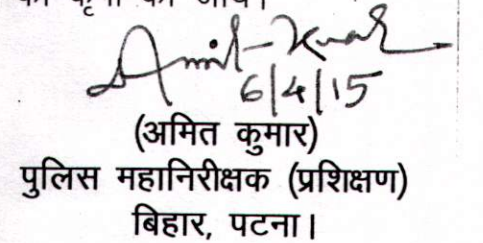 की कृपा की जाय।
Amit Kumar
6/4/15
(अमित कुमार)
पुलिस महानिरीक्षक (प्रशिक्षण)
बिहार, पटना।